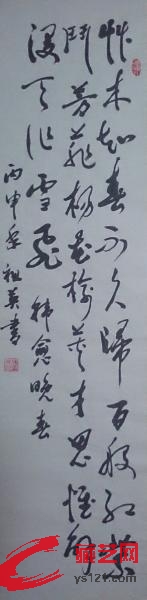 草木知春不久归百般红紫
斗芳菲杨花榆荚无才思惟解
漫天作雪飞 韩愈晚春
丙申年祖英书
藏艺网
ys1211.com